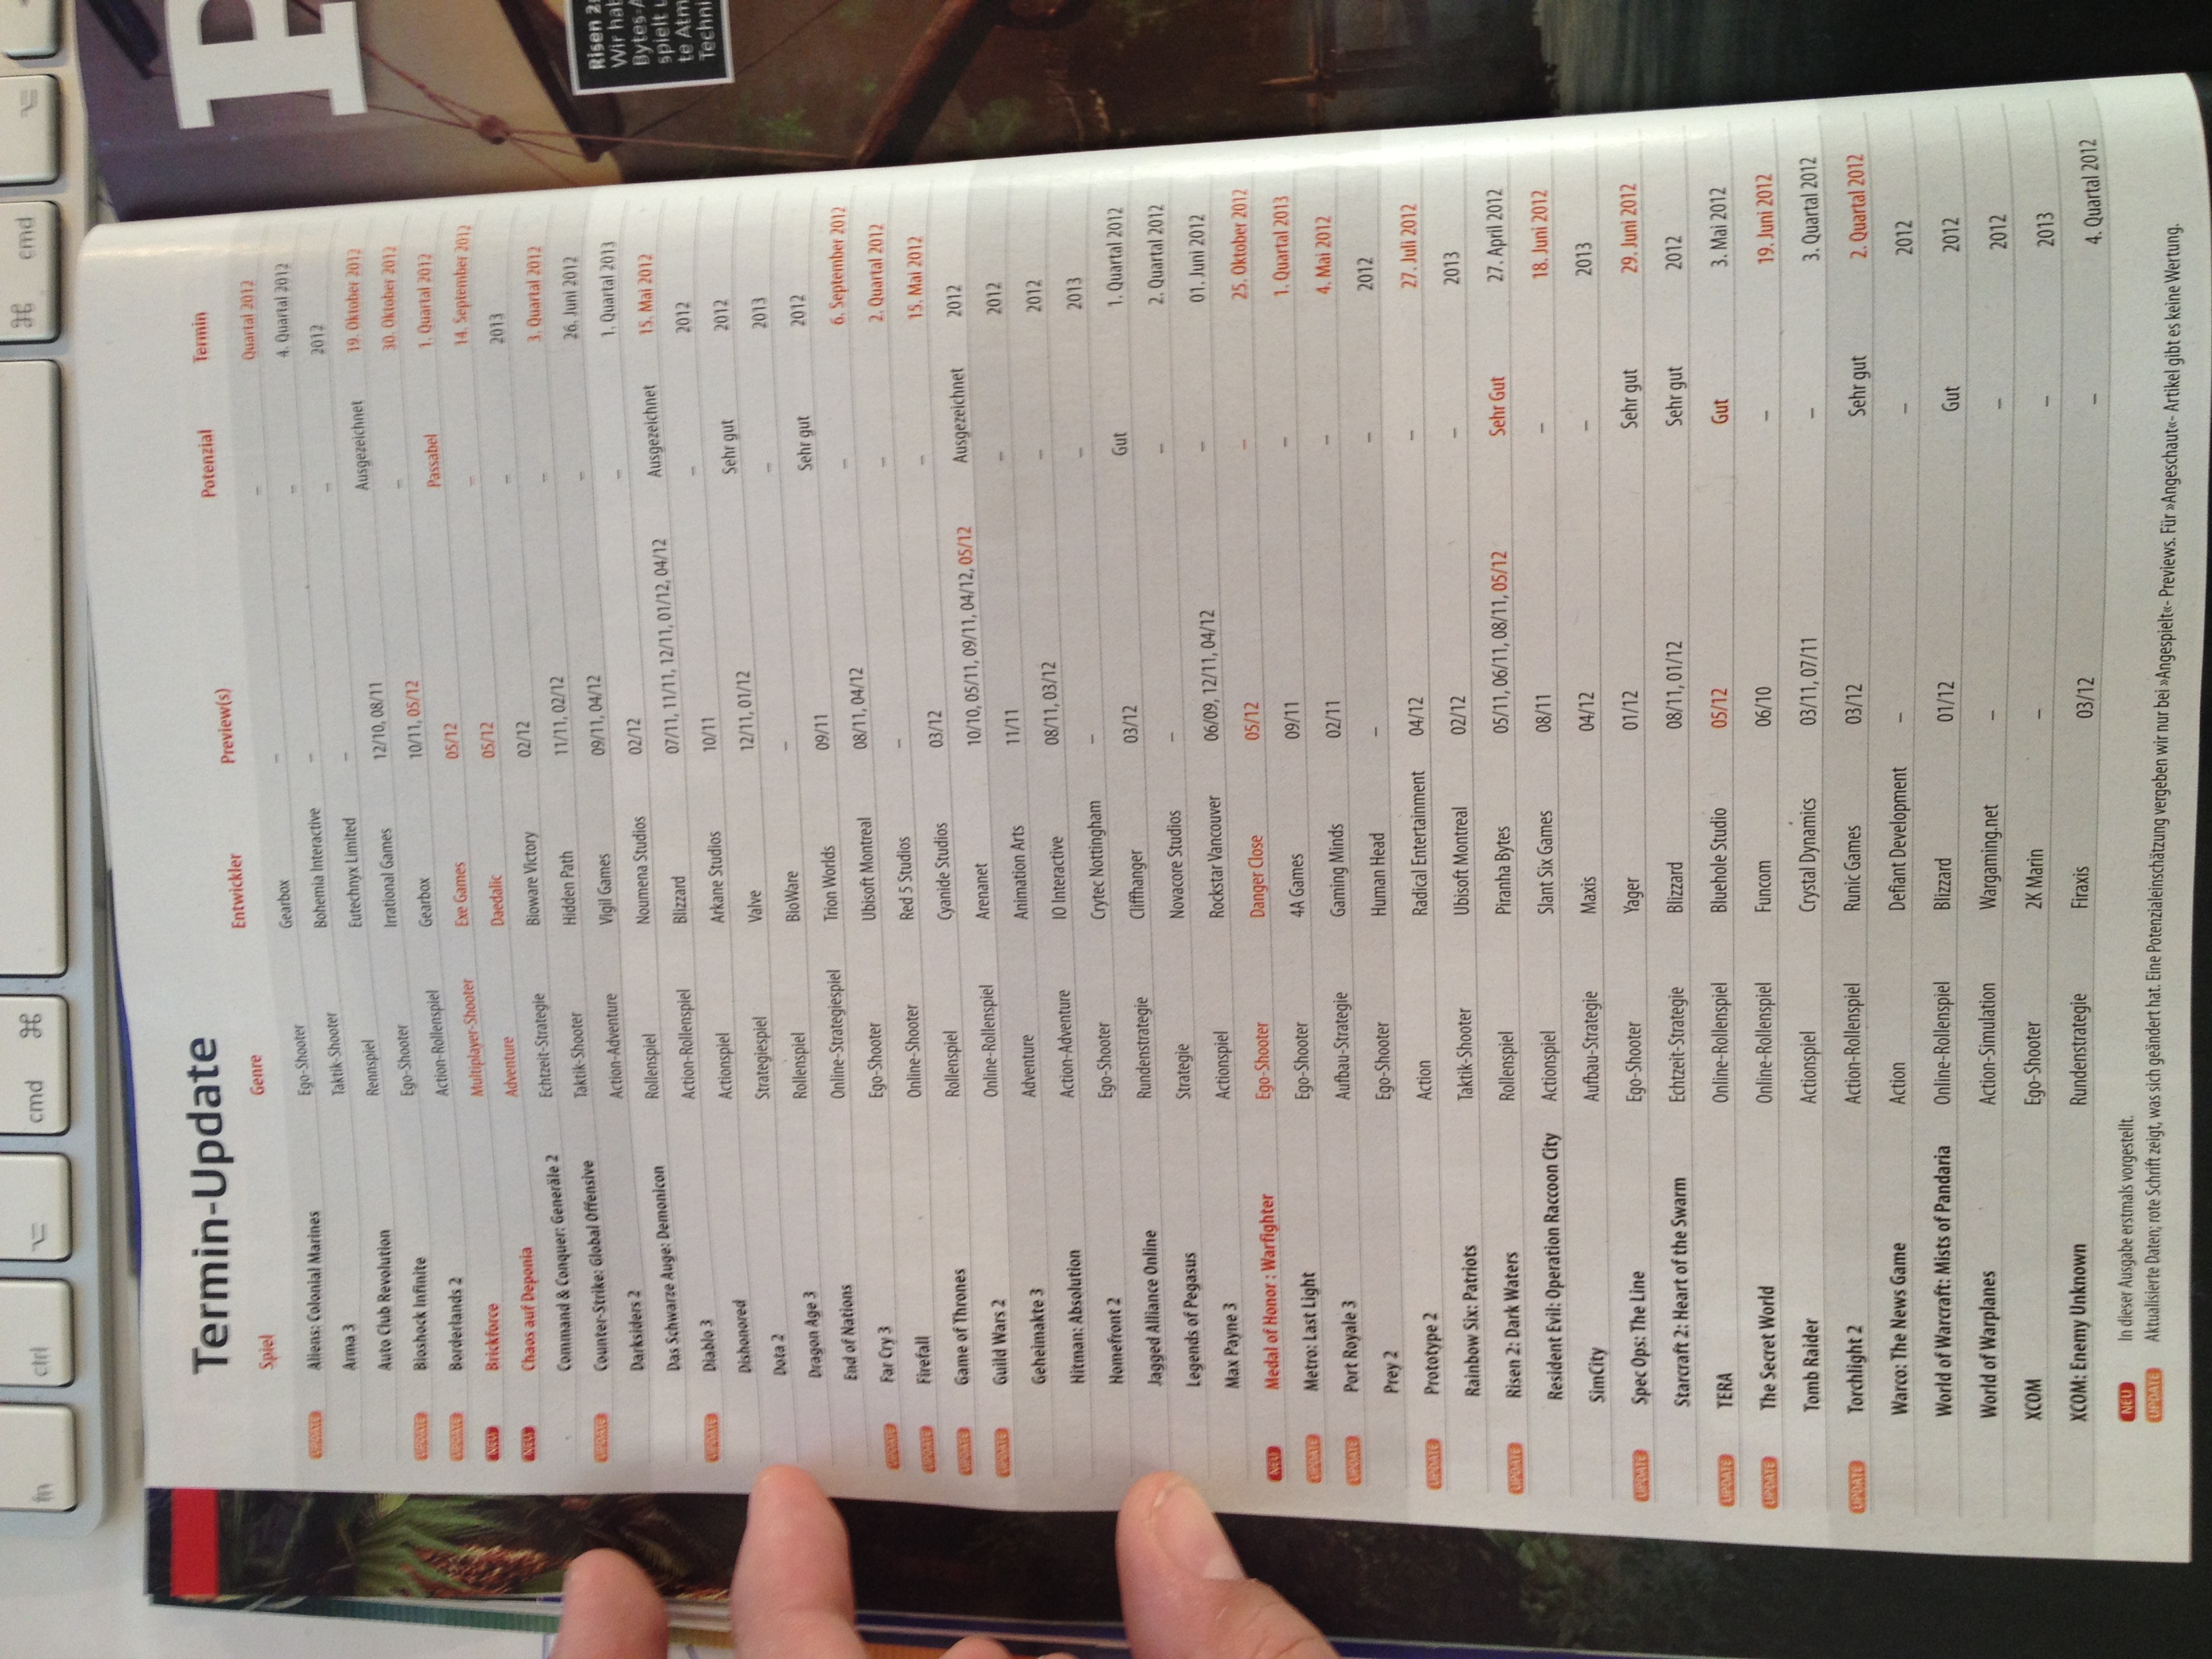 fn
ctrl
⌥
cmd ⌘
⌘ cmd
⌥
Risen 2:
Wir hab
Bytes-A
spielt u
te Atm
Techni
Termin-Update
Spiel Genre Entwickler Preview(s) Potenzial Termin
UPDATE Aliens: Colonial Marines Ego-Shooter Gearbox – – Quartal 2012
Arma 3 Taktik-Shooter Bohemia Interactive – – 4. Quartal 2012
Auto Club Revolution Rennspiel Eutechnyx Limited – – 2012
UPDATE Bioshock Infinite Ego-Shooter Irrational Games 12/10, 08/11 Ausgezeichnet 19. Oktober 2012
UPDATE Borderlands 2 Action-Rollenspiel Gearbox 10/11, 05/12 – 30. Oktober 2012
NEU Brickforce Multiplayer-Shooter Exe Games 05/12 Passabel 1. Quartal 2012
NEU Chaos auf Deponia Adventure Daedalic 05/12 – 14. September 2012
Command & Conquer: Generäle 2 Echtzeit-Strategie Bioware Victory 02/12 – 2013
UPDATE Counter-Strike: Global Offensive Taktik-Shooter Hidden Path 11/11, 02/12 – 3. Quartal 2012
Darksiders 2 Action-Adventure Vigil Games 09/11, 04/12 – 26. Juni 2012
Das Schwarze Auge: Demonicon Rollenspiel Noumena Studios 02/12 – 1. Quartal 2013
UPDATE Diablo 3 Action-Rollenspiel Blizzard 07/11, 11/11, 12/11, 01/12, 04/12 Ausgezeichnet 15. Mai 2012
Dishonored Actionspiel Arkane Studios 10/11 – 2012
Dota 2 Strategiespiel Valve 12/11, 01/12 Sehr gut 2012
Dragon Age 3 Rollenspiel BioWare – – 2013
End of Nations Online-Strategiespiel Trion Worlds 09/11 Sehr gut 2012
UPDATE Far Cry 3 Ego-Shooter Ubisoft Montreal 08/11, 04/12 – 6. September 2012
UPDATE Firefall Online-Shooter Red 5 Studios – – 2. Quartal 2012
UPDATE Game of Thrones Rollenspiel Cyanide Studios 03/12 – 15. Mai 2012
UPDATE Guild Wars 2 Online-Rollenspiel Arenanet 10/10, 05/11, 09/11, 04/12, 05/12 Ausgezeichnet 2012
Geheimakte 3 Adventure Animation Arts 11/11 – 2012
Hitman: Absolution Action-Adventure IO Interactive 08/11, 03/12 – 2012
Homefront 2 Ego-Shooter Crytec Nottingham – – 2013
Jagged Alliance Online Rundenstrategie Cliffhanger 03/12 Gut 1. Quartal 2012
Legends of Pegasus Strategie Novacore Studios – – 2. Quartal 2012
Max Payne 3 Actionspiel Rockstar Vancouver 06/09, 12/11, 04/12 – 01. Juni 2012
NEU Medal of Honor : Warfighter Ego-Shooter Danger Close 05/12 – 25. Oktober 2012
UPDATE Metro: Last Light Ego-Shooter 4A Games 09/11 – 1. Quartal 2013
UPDATE Port Royale 3 Aufbau-Strategie Gaming Minds 02/11 – 4. Mai 2012
Prey 2 Ego-Shooter Human Head – – 2012
UPDATE Prototype 2 Action Radical Entertainment 04/12 – 27. Juli 2012
Rainbow Six: Patriots Taktik-Shooter Ubisoft Montreal 02/12 – 2013
UPDATE Risen 2: Dark Waters Rollenspiel Piranha Bytes 05/11, 06/11, 08/11, 05/12 Sehr Gut 27. April 2012
Resident Evil: Operation Raccoon City Actionspiel Slant Six Games 08/11 – 18. Juni 2012
SimCity Aufbau-Strategie Maxis 04/12 – 2013
UPDATE Spec Ops: The Line Ego-Shooter Yager 01/12 Sehr gut 29. Juni 2012
Starcraft 2: Heart of the Swarm Echtzeit-Strategie Blizzard 08/11, 01/12 Sehr gut 2012
UPDATE TERA Online-Rollenspiel Bluehole Studio 05/12 Gut 3. Mai 2012
UPDATE The Secret World Online-Rollenspiel Funcom 06/10 – 19. Juni 2012
Tomb Raider Actionspiel Crystal Dynamics 03/11, 07/11 – 3. Quartal 2012
UPDATE Torchlight 2 Action-Rollenspiel Runic Games 03/12 Sehr gut 2. Quartal 2012
Warco: The News Game Action Defiant Development – – 2012
World of Warcraft: Mists of Pandaria Online-Rollenspiel Blizzard 01/12 Gut 2012
World of Warplanes Action-Simulation Wargaming.net – – 2012
XCOM Ego-Shooter 2K Marin – – 2013
XCOM: Enemy Unknown Rundenstrategie Firaxis 03/12 – 4. Quartal 2012
NEU In dieser Ausgabe erstmals vorgestellt.
UPDATE Aktualisierte Daten; rote Schrift zeigt, was sich geändert hat. Eine Potenzialeinschätzung vergeben wir nur bei »Angespielt«- Previews. Für »Angeschaut«- Artikel gibt es keine Wertung.